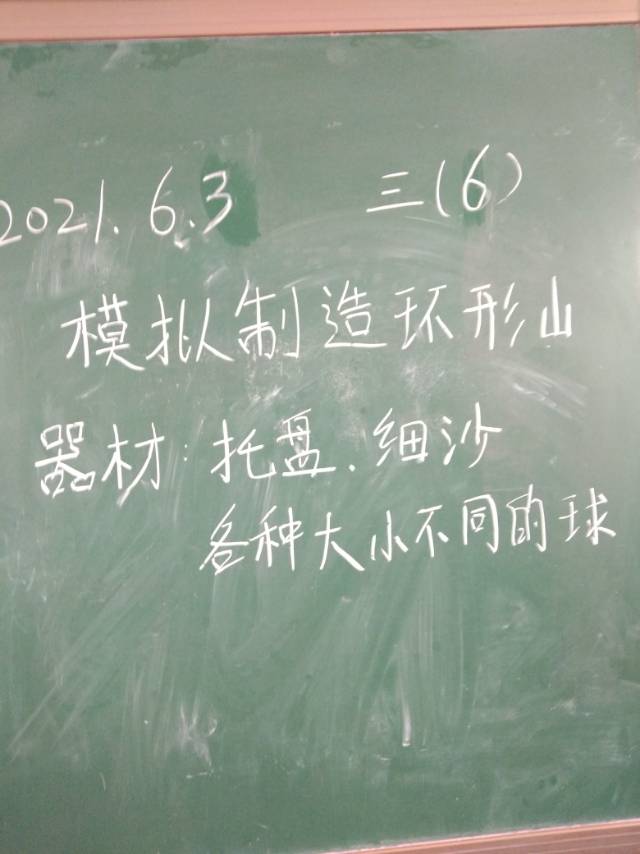 2021.6.3 三(6)
模拟制造环形山
器材:托盘.细沙
各种大小不同的球